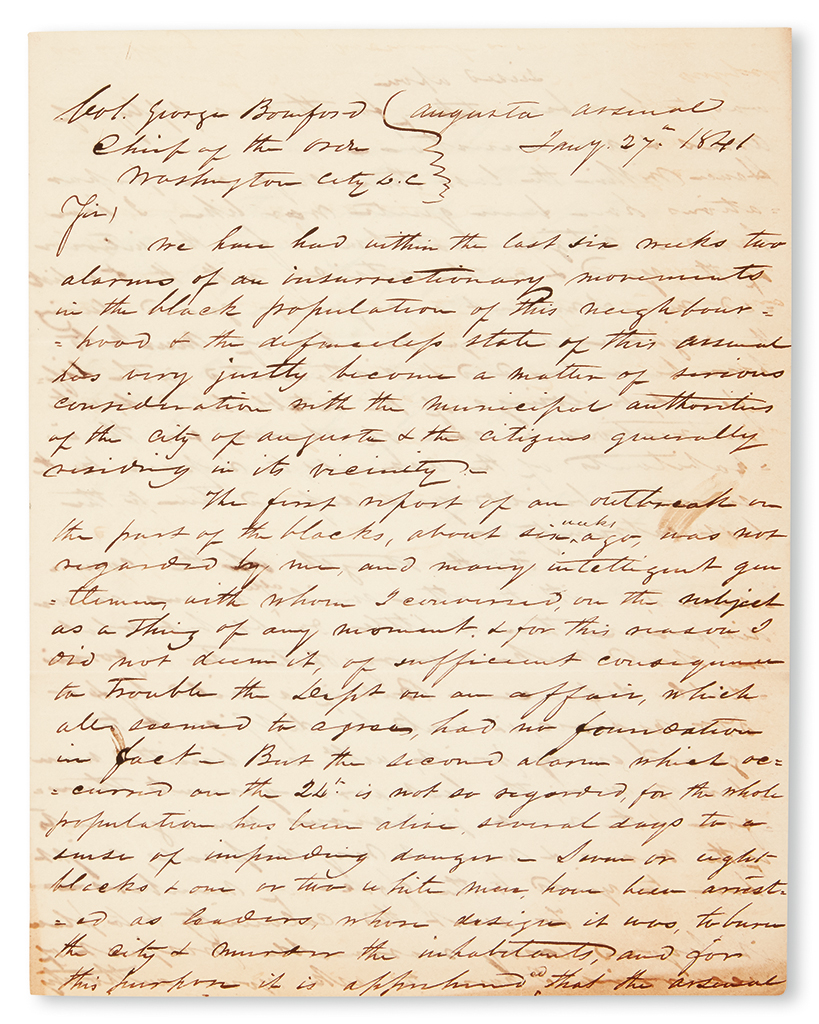 Col. George Bomford
Chief of the Ord
Washington City D.C
Augusta Arsenal
Jany. 27th 1841
Sir,
We have had within the last six weeks two
alarms of an insurrectionary movements
in the black population of this neighbour=
=hood & the defenceless state of this arsenal
has very justly become a matter of serious
consideration with the municipal authorities
of the city of augusta & the citizens generally
residing in its vicinity.-
The first report of an outbreak on
the part of the blacks, about six weeks ago, was not
regarded by me, and many intelligent gen
=tlemen, with whom I conversed, on the subject
as a thing of any moment. & for this reason I
did not deem it, of sufficient consequence
to trouble the Dept on an affair, which
all, seemed to agree, had no foundation
in fact - But the second alarm which oc=
=curred on the 24th is not so regarded, for the whole
population has been alive several days to a
sense of impending danger - Seven or eight
blacks & one or two white men, have been arrest-
=ed as leaders, whose design it was, to burn
the city & murder the inhabitants, and for
this purpose it is apprehended, that the arsenal